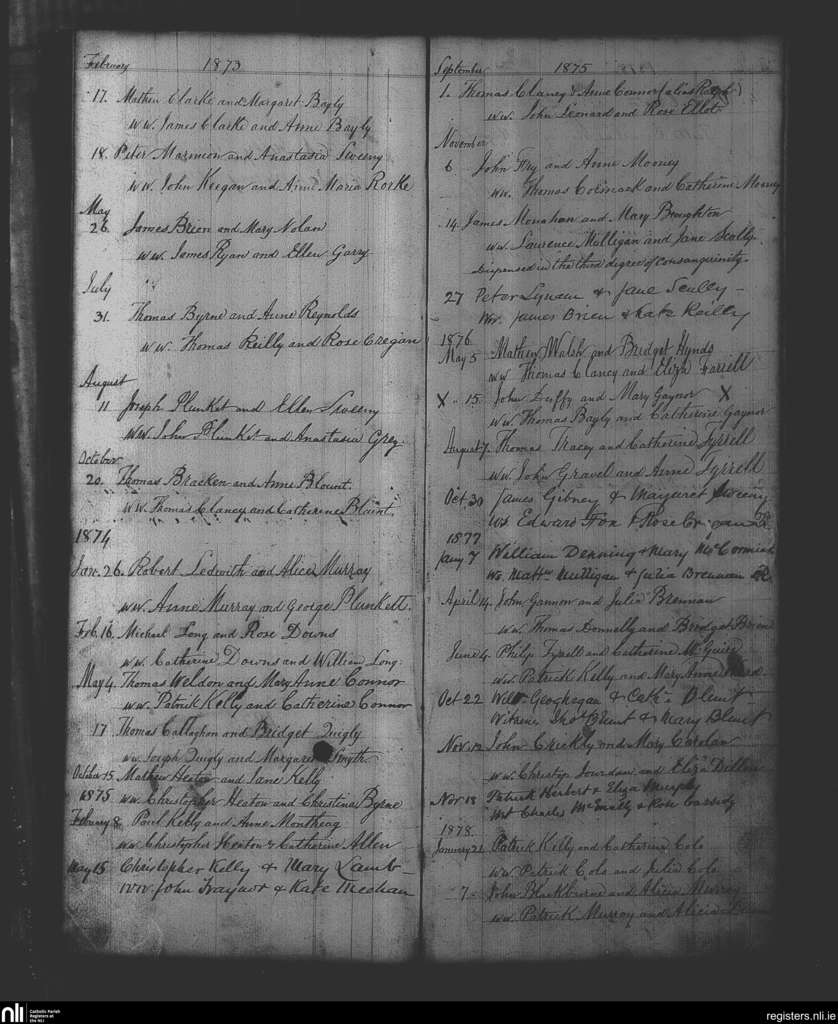 February 1873
17. Mathew Clarke and Margaret Bayly
w.w. James Clarke and Anne Bayly
18. Peter Marmion and Anastasia Sweeny
w.w. John Keegan and Anne Maria Rorke
May
26. James Brien and Mary Nolan
w.w. James Ryan and Ellen Garry
July
31. Thomas Byrne and Anne Reynolds
w.w. Thomas Reilly and Rose Cregan
August
11 Joseph Plunket and Ellen Sweeny
w.w. John Plunket and Anastasia Grey.
October
20. Thomas Bracken and Anne Blount.
w.w. Thomas Clancy and Catherine Blount.
1874
Jan. 26. Robert Ledwith and Alice Murray
w.w. Anne Murray and George Plunkett.
Feb. 16. Michael Long and Rose Downs
w.w. Catherine Downs and William Long.
May 4. Thomas Weldon and Mary Anne Connor
w.w. Patrick Kelly and Catherine Connor
17 Thomas Callaghan and Bridget Quigly
w.w. Joseph Quigly and Margaret Smyth.
October 15. Mathew Heaton and Jane Kelly
1875 w.w. Christopher Heaton and Christina Byrne
February 8. Paul Kelly and Anne
w.w. Christopher Heaton & Catherine Allen
May 15 Christopher Kelly & Mary Lamb
w.w. John Traynor & Kate Meehan
September 1875
1. Thomas Clancy & Anne Connor (alias )
w.w. John Leonard and Rose Ellot
November
6 John Fry and Anne Mooney
w.w. Thomas Cormack and Catherine Mooney
14. James Monahan and Mary Broughton
w.w. Laurence Mulligan and Jane Scally.
Dispensed in the third degree of consanguinity.
27 Peter Lynam & Jane Scully
w.w. James Brien & Kate Reilly
1876
May 5 Mathew Walsh and Bridget Hynds
w.w Thomas Clancy and Eliza Farrell
X .. 15. John Duffy and Mary Gaynor X
w.w. Thomas Bayly and Catherine Gaynor
August 7. Thomas Tracey and Catherine Tyrrell
w.w. John Gravel and Anne Tyrrell
Oct 30 James Gibney & Margaret Sweeny
Ws Edward Fox & Rose
1877
Jany 7 William Denning & Mary McCormick
Ws. Matt. Mulligan & Julia Brennan
April 14. John Gannon and Julia Brennan
w.w. Thomas Donnelly and Bridget Briene
June 4. Philip Tyrell and Catherine McGuire
w.w. Patrick Kelly and Mary Anne
Oct 22 Willm Geoghegan & Cath. Blunt
Witness Thos Blunt & Mary Blunt
Nov. 12 John Crickly and Mary Carolan
w.w. Christop. Jourdan and Eliza Dillon
Nov 18 Patrick Herbert & Eliza Murphy
Wt Charles McEnally & Rose Cassidy
1878.
January 21 Patrick Kelly and Catherine Cole
w.w. Patrick Cole and Julia Cole
7. John Blackburne and Alicia Murray
w.w. Patrick Murray and Alicia
nli
Catholic Parish
Registers at
the NLI
registers.nli.ie